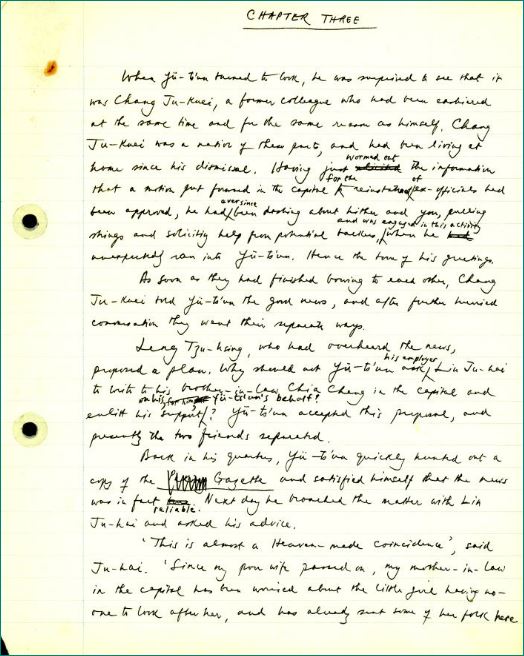 CHAPTER THREE
When Yü-ts'un turned to look, he was surprised to see that it
was Chang Ju-kuei, a former colleague who had been cashiered
at the same time and for the same reason as himself. Chang
Ju-kuei was a native of these parts, and had been living at
home since his dismissal. Having just wormed out the information
that a motion put forward in the capital for the reinstatement of ex-officials had
been approved, he had ever since been dashing about hither and yon, pulling
strings and soliciting help from potential backers, and was engaged in this activity when he
unexpectedly ran into Yü-ts'un. Hence the tone of his greetings.
As soon as they had finished bowing to each other, Chang
Ju-kuei told Yü-ts'un the good news, and after further hurried
conversation they went their separate ways.
Leng Tzu-hsing, who had overheard the news,
proposed a plan. Why should not Yü-ts'un ask his employer, Lin Ju-hai
to write to his brother-in-law Chia Cheng in the capital and
enlist his support on his Yü-ts'un's behalf? Yü-ts'un accepted this proposal, and
presently the two friends separated.
Back in his quarters, Yü-ts'un quickly hunted out a
copy of the Gazette and satisfied himself that the news
was in fact reliable. Next day he broached the matter with Lin
Ju-hai and asked his advice.
'This is almost a Heaven-made coincidence', said
Ju-hai. 'Since my poor wife passed on, my mother-in-law
in the capital has been worried about the little girl having no-
one to look after her, and has already sent some of her folk here